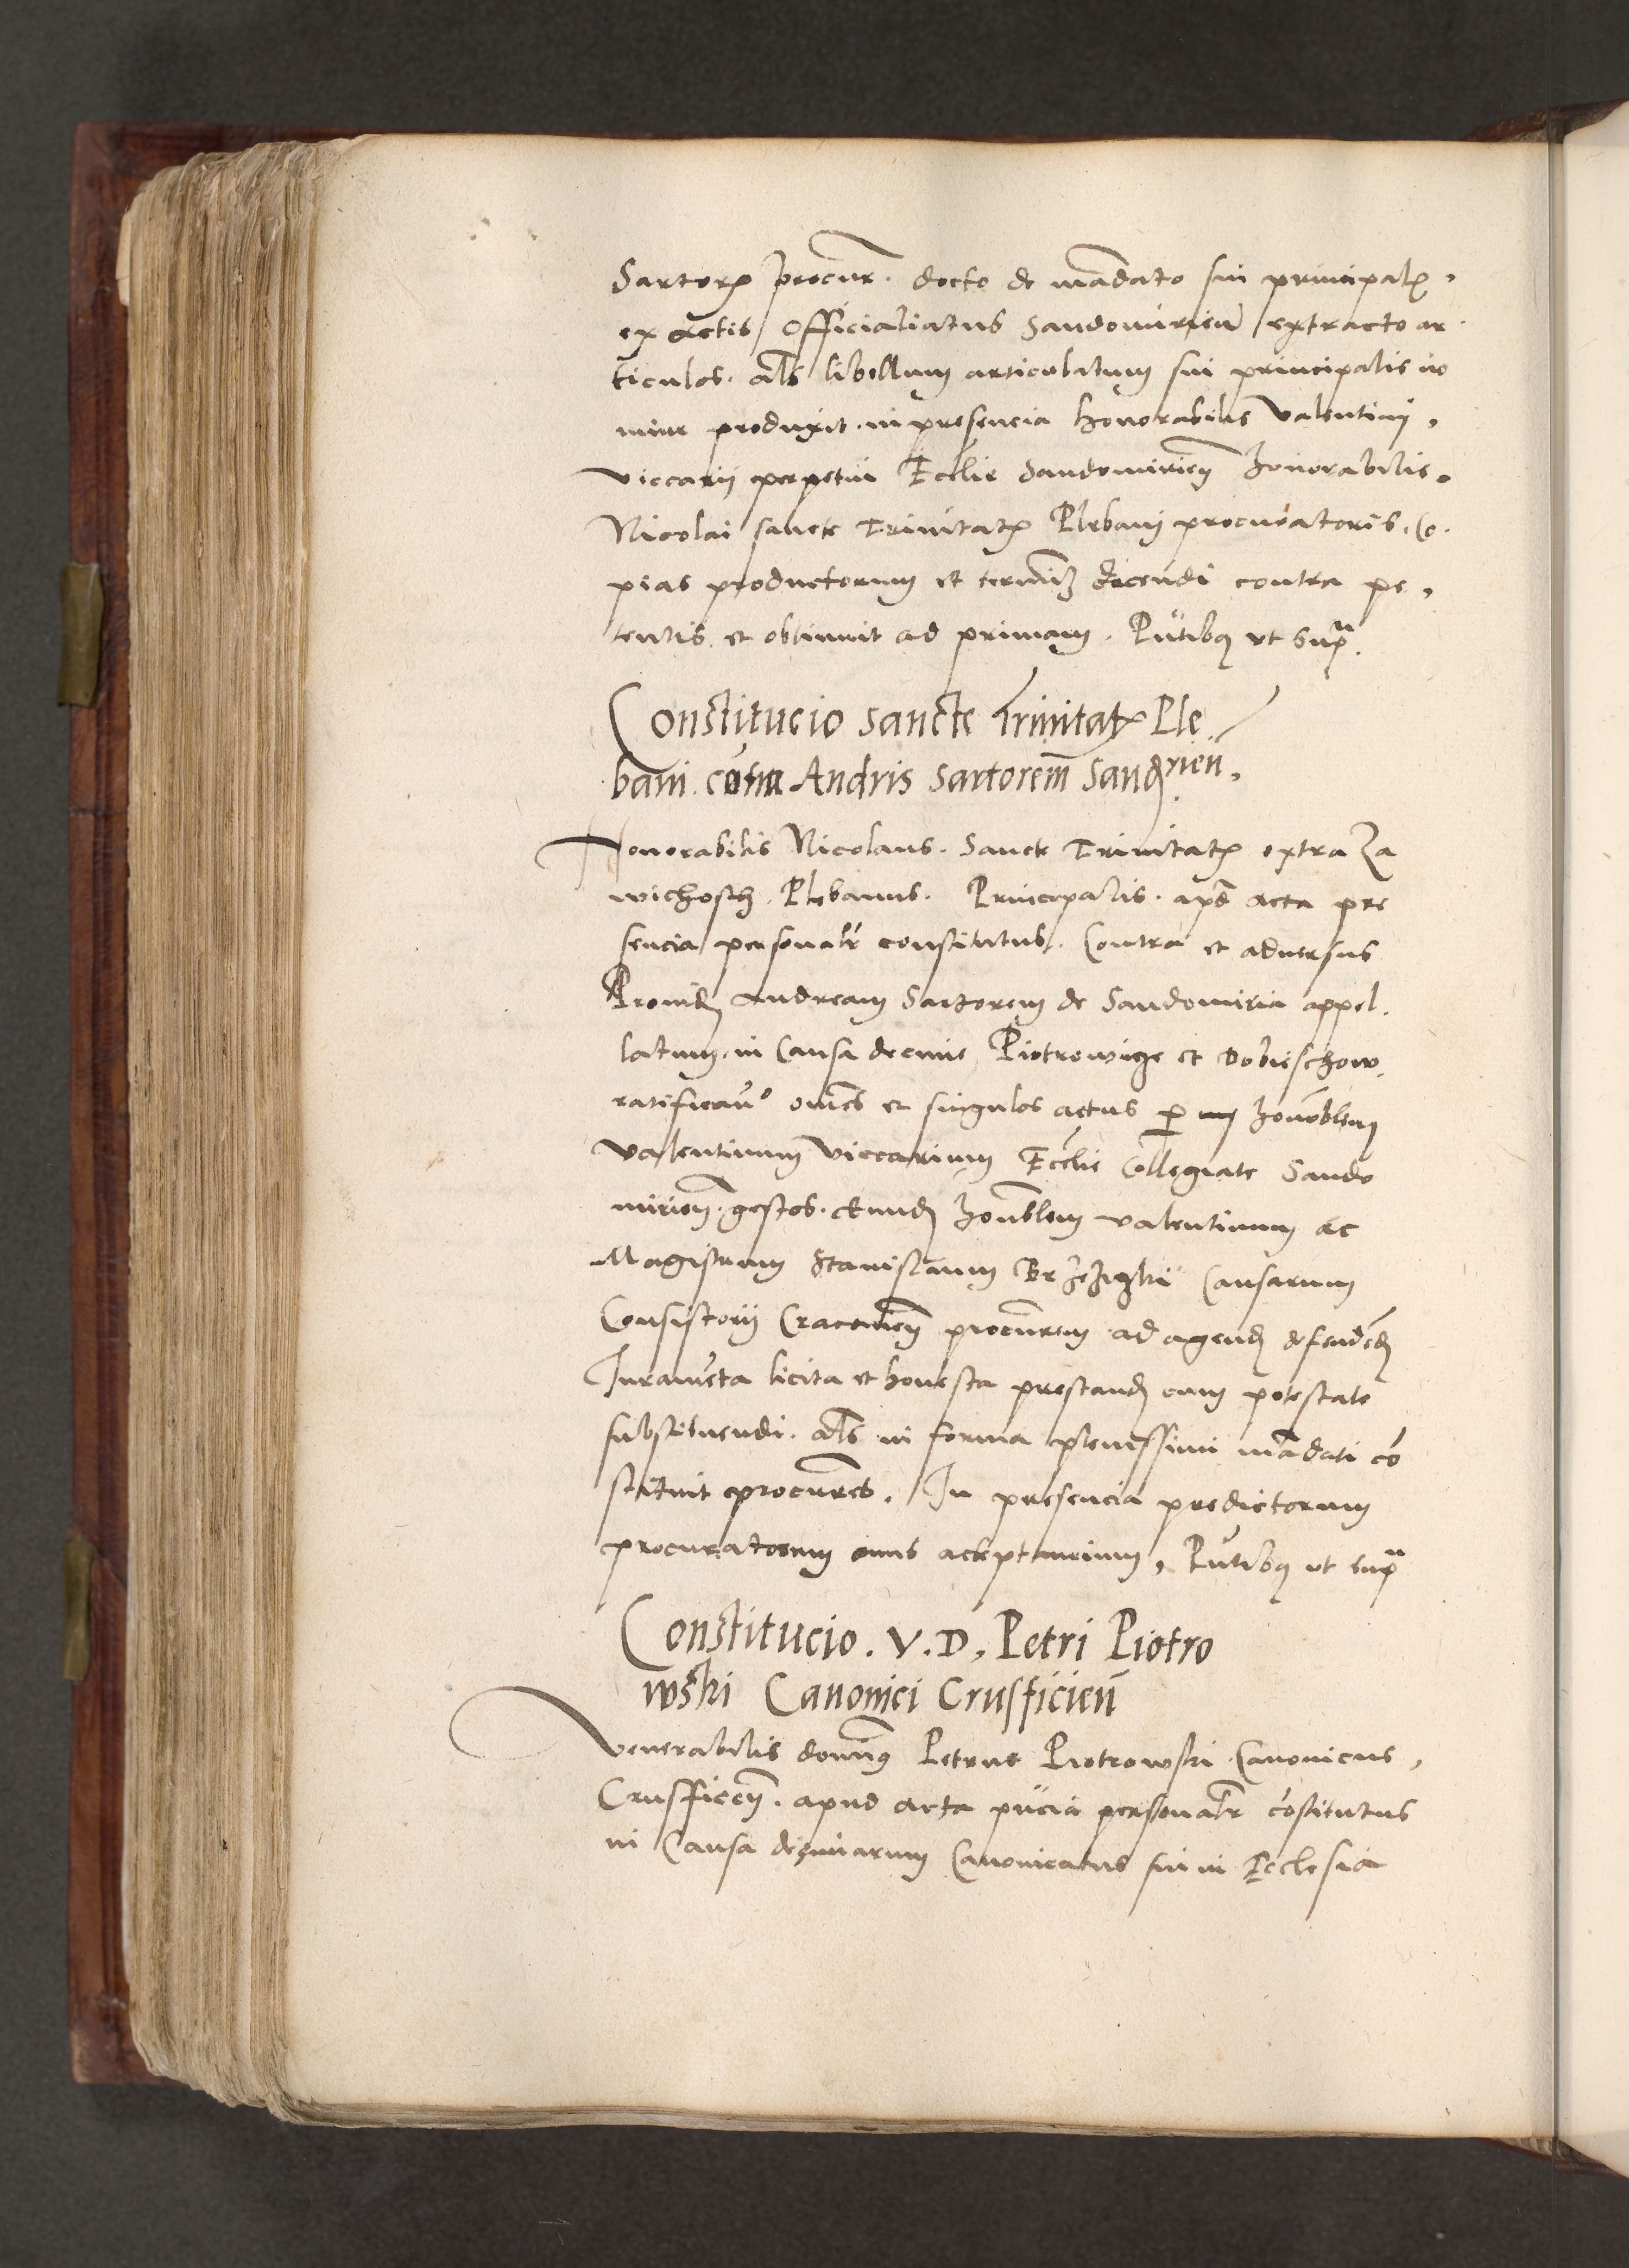 Sartoris procur. docto de mãdato sui principalis,
ex actis Officialiatus Sandomirien̄ extracto ar
ticulos. als libellum articulatum sui principalis no
mine produxit. in presencia honorabilis Valentini,
viccarij perpetui Ecclie Sandomirien̄ honorabilis.
Nicolai sancte Trinitatis Plebani procuratoris. Co.
pias productorum et termin̄ dicendi contra pe,
tentis et obtinuit ad primam. Pn̄tibus vt supra.
Constitucio sancte Trinitatis Ple
bani. contra Andris Sartorem̄ Sandrien̄.
Honorabilis Nicolaus. Sancte Trinitatis extra Za
wichosth. Plebanus. Principalis. apud acta pre
sencia personalr constitutus. Contra et adversus
Providum Andream Sartorem de Sandomiria appel.
latum. in Causa decime Piotrowicze et Dobieschow.
ratificauō om̄es et singulos actus per honorablem
Valentinum Viccarium Ecclie Collegiate Sando
mirien̄. gestos. eund honorablem valentinum ac
Magistrum Stanislaum Causarum
Consistorij Cracovien̄ procurem ad agend defendēd
Juramēta licita et honesta prestand cum potestate
substituendi. als in forma plenissimi mādati cō
stituit procures. In presencia predictorum
procuratorum onus acceptancium, Pn̄tibus vt supra
Constitucio. V. D. Petri Piotro
wski Canonici Crusficien̄
Venerabilis domins Petrus Piotrowski Canonicus,
Crusfficen̄. apud acta pn̄cia personalr cōstitutus
in Causa decimarum Canonicatus sui in Ecclesia